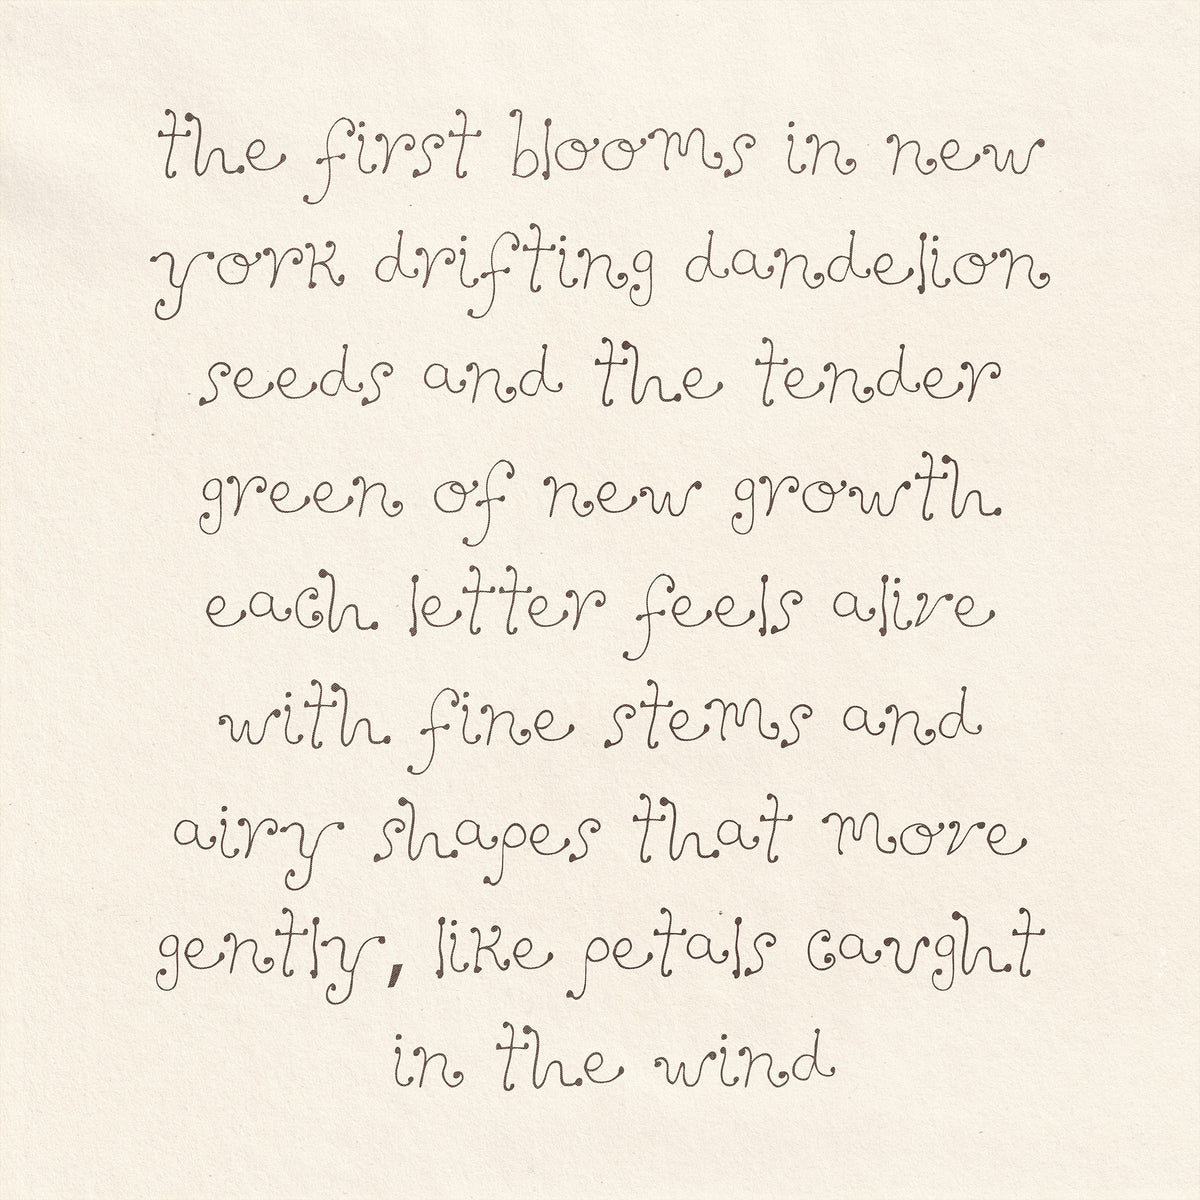 the first blooms in new
york drifting dandelion
seeds and the tender
green of new growth
each letter feels alive
with fine stems and
airy shapes that move
gently, like petals caught
in the wind